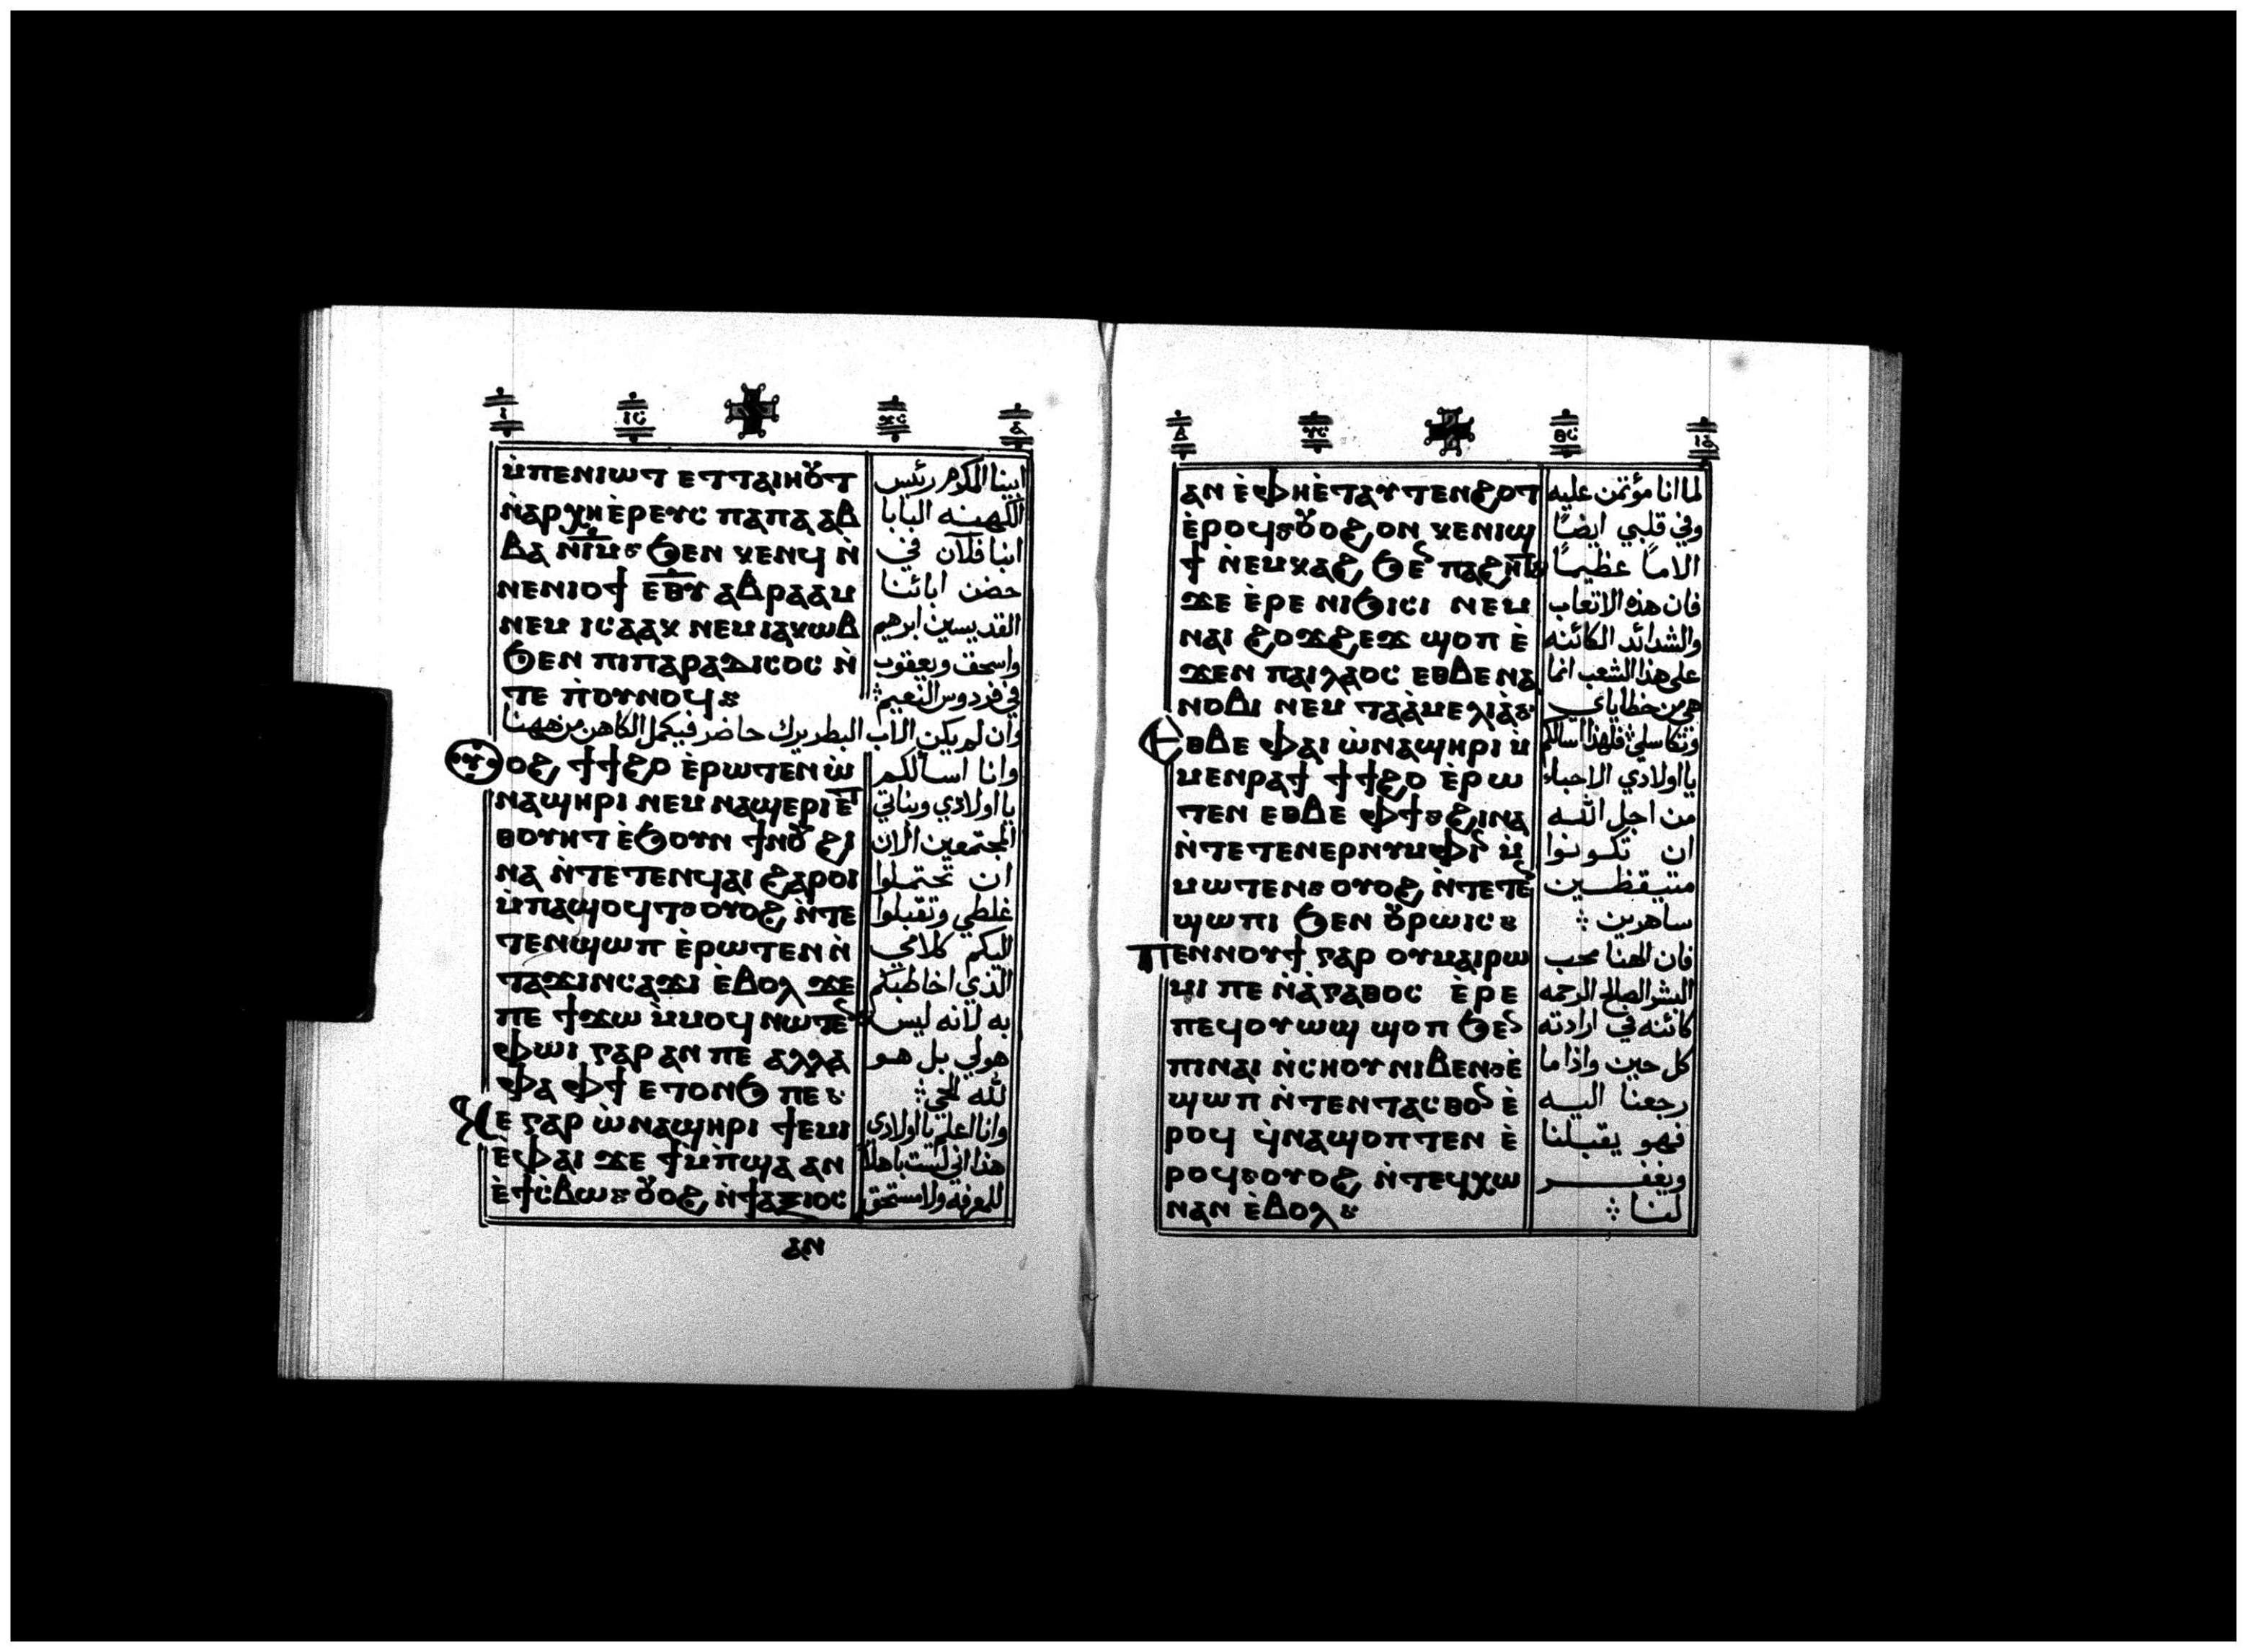 ⲙ̀ⲡⲉⲛⲓⲱⲧ ⲉⲧⲧⲁⲓⲏⲟⲩⲧ
ⲛ̀ⲁⲣⲭⲏⲉ̀ⲣⲉⲩⲥ ⲡⲁⲡⲁ ⲁⲃ
ⲃⲁ ⲛⲓⲙ ϧⲉⲛ ⲕⲉⲛϥ ⲛ̀
ⲛⲉⲛⲓⲟϯ ⲉⲑⲩ ⲁⲃⲣⲁⲁⲙ
ⲛⲉⲙ ⲓⲥⲁⲁⲕ ⲛⲉⲙ ⲓⲁⲕⲱⲃ
ϧⲉⲛ ⲡⲓⲡⲁⲣⲁⲇⲓⲥⲟⲥ ⲛ̀
ⲧⲉ ⲡ̀ⲟⲩⲛⲟϥ
ابينا المكرم رئيس
الكهنه البابا
انبا فلان في
حضن ابائنا
القديسين ابرهيم
واسحق ويعقوب
في فردوس النعيم
وان لم يكن الاب البطريرك حاضر فيكمل الكاهن من ههنا
ⲟⲩⲟϩ ϯϯϩⲟ ⲉ̀ⲣⲱⲧⲉⲛ ⲱ̀
ⲛⲁϣⲏⲣⲓ ⲛⲉⲙ ⲛⲁϣⲉⲣⲓ ⲉⲧ
ⲑⲟⲩⲏⲧ ⲉ̀ϧⲟⲩⲛ ϯⲛⲟⲩ ϩⲓ
ⲛⲁ ⲛ̀ⲧⲉⲧⲉⲛϥⲁⲓ ϩⲁⲣⲟⲓ
ⲙ̀ⲡⲁϣⲟϥⲧ ⲟⲩⲟϩ ⲛ̀ⲧⲉ
ⲧⲉⲛϣⲱⲡ ⲉ̀ⲣⲱⲧⲉⲛ ⲛ̀
ⲧⲁϫⲓⲛⲥⲁϫⲓ ⲉ̀ⲃⲟⲗ ϫⲉ
ⲡⲉ ϯϫⲱ ⲙ̀ⲙⲟϥ ⲛⲱⲧⲉⲛ
ⲫⲱⲓ ⲅⲁⲣ ⲁⲛ ⲡⲉ ⲁⲗⲗⲁ
ⲫⲁ ⲫϯ ⲉⲧⲟⲛϧ ⲡⲉ
ϫⲉ ⲅⲁⲣ ⲱ̀ⲛⲁϣⲏⲣⲓ ϯⲉⲙⲓ
ⲉⲫⲁⲓ ϫⲉ ϯⲙ̀ⲡϣⲁ ⲁⲛ
ⲉ̀ϯⲥ̀ⲃⲱ ⲟⲩⲟϩ ⲛ̀ϯⲁⲝⲓⲟⲥ
ⲁⲛ
وانا اسالكم
يا اولادي وبناتي
المجتمعين الان
ان تحتملوا
غلطي وتقبلوا
اليكم كلامي
الذي اخاطبكم
به لانه ليس
هولي بل هو
لله الحي
وانا اعلم يا اولادي
هذا اني لست باهلا
للمعرفه ولا مستحق
ⲁⲛ ⲉ̀ⲫⲏⲉ̀ⲧⲁⲩⲧⲉⲛϩⲟⲧ
ⲉ̀ⲣⲟϥ ⲟⲩⲟϩ ⲟⲛ ⲕⲉⲛⲓϣ
ϯ ⲛ̀ⲉⲙⲕⲁϩ ϧⲉⲛ ⲡⲁϩⲏⲧ
ϫⲉ ⲉ̀ⲣⲉ ⲛⲓϧⲓⲥⲓ ⲛⲉⲙ
ⲛⲁⲓ ϩⲟϫϩⲉϫ ϣⲟⲡ ⲉ̀
ϫⲉⲛ ⲡⲁⲓⲗⲁⲟⲥ ⲉⲑⲃⲉ ⲛⲁ
ⲛⲟⲃⲓ ⲛⲉⲙ ⲧⲁⲁ̀ⲙⲉⲗⲓⲁ̀
ⲉⲑⲃⲉ ⲫⲁⲓ ⲱ̀ⲛⲁϣⲏⲣⲓ ⲙ̀
ⲙⲉⲛⲣⲁϯ ϯϯϩⲟ ⲉ̀ⲣⲱ
ⲧⲉⲛ ⲉⲑⲃⲉ ⲫϯ ϩⲓⲛⲁ
ⲛ̀ⲧⲉⲧⲉⲛⲉⲣⲛⲩⲙⲫⲓⲛ ⲙ̀
ⲙⲱⲧⲉⲛ ⲟⲩⲟϩ ⲛ̀ⲧⲉⲧⲉⲛ
ϣⲱⲡⲓ ϧⲉⲛ ⲟⲩⲣⲱⲓⲥ
ⲡⲉⲛⲛⲟⲩϯ ⲅⲁⲣ ⲟⲩⲙⲁⲓⲣⲱ
ⲙⲓ ⲡⲉ ⲛ̀ⲁ̀ⲅⲁⲑⲟⲥ ⲉ̀ⲣⲉ
ⲡⲉϥⲟⲩⲱϣ ϣⲟⲡ ϧⲉⲛ
ⲡⲓⲛⲁⲓ ⲛ̀ⲥⲏⲟⲩ ⲛⲓⲃⲉⲛ ⲉ̀
ϣⲱⲡ ⲛ̀ⲧⲉⲛⲧⲁⲥⲑⲟⲛ ⲉ̀
ⲣⲟϥ ϥ̀ⲛⲁϣⲟⲡⲧⲉⲛ ⲉ̀
ⲣⲟϥ ⲟⲩⲟϩ ⲛ̀ⲧⲉϥⲭⲱ
ⲛⲁⲛ ⲉ̀ⲃⲟⲗ
لما انا مؤتمن عليه
وفي قلبي ايضًا
الامًا عظيمًا
فان هذه الاتعاب
والشدائد الكائنه
على هذا الشعب انما
هي من خطاياي
وتكاسلي فلهذا اسالكم
يا اولادي الاحباء
من اجل الله
ان تكونوا
متيقظين
ساهرين
فان الهنا محب
البشر الصالح الرحمه
كائنه في ارادته
كل حين واذا ما
رجعنا اليه
فهو يقبلنا
ويغفر
لنا